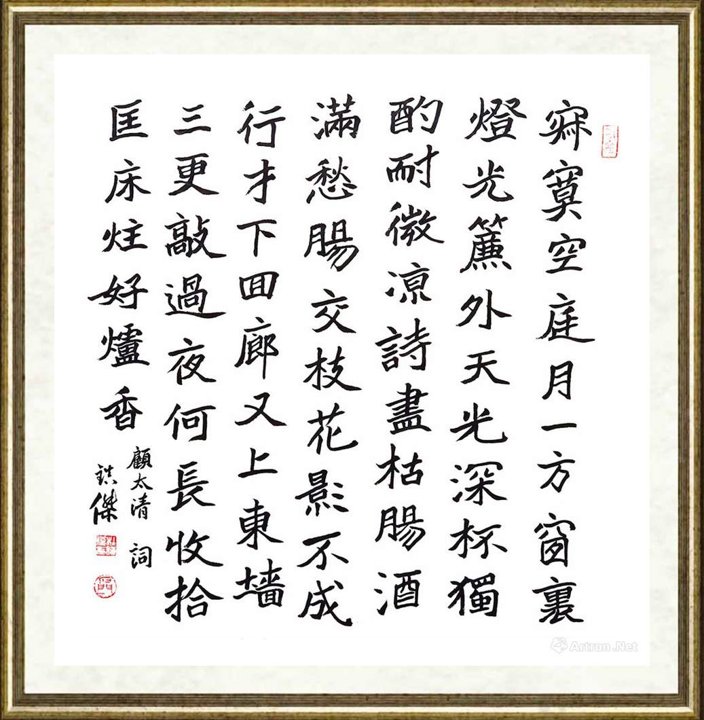 寂寞空庭月一方窗裏
燈光簾外天光深杯獨
酌耐微涼詩盡枯腸酒
滿愁腸交枝花影不成
行才下回廊又上東墻
三更敲過夜何長收拾
匡床炷好爐香
顧太清 詞
傑
Artron.Net